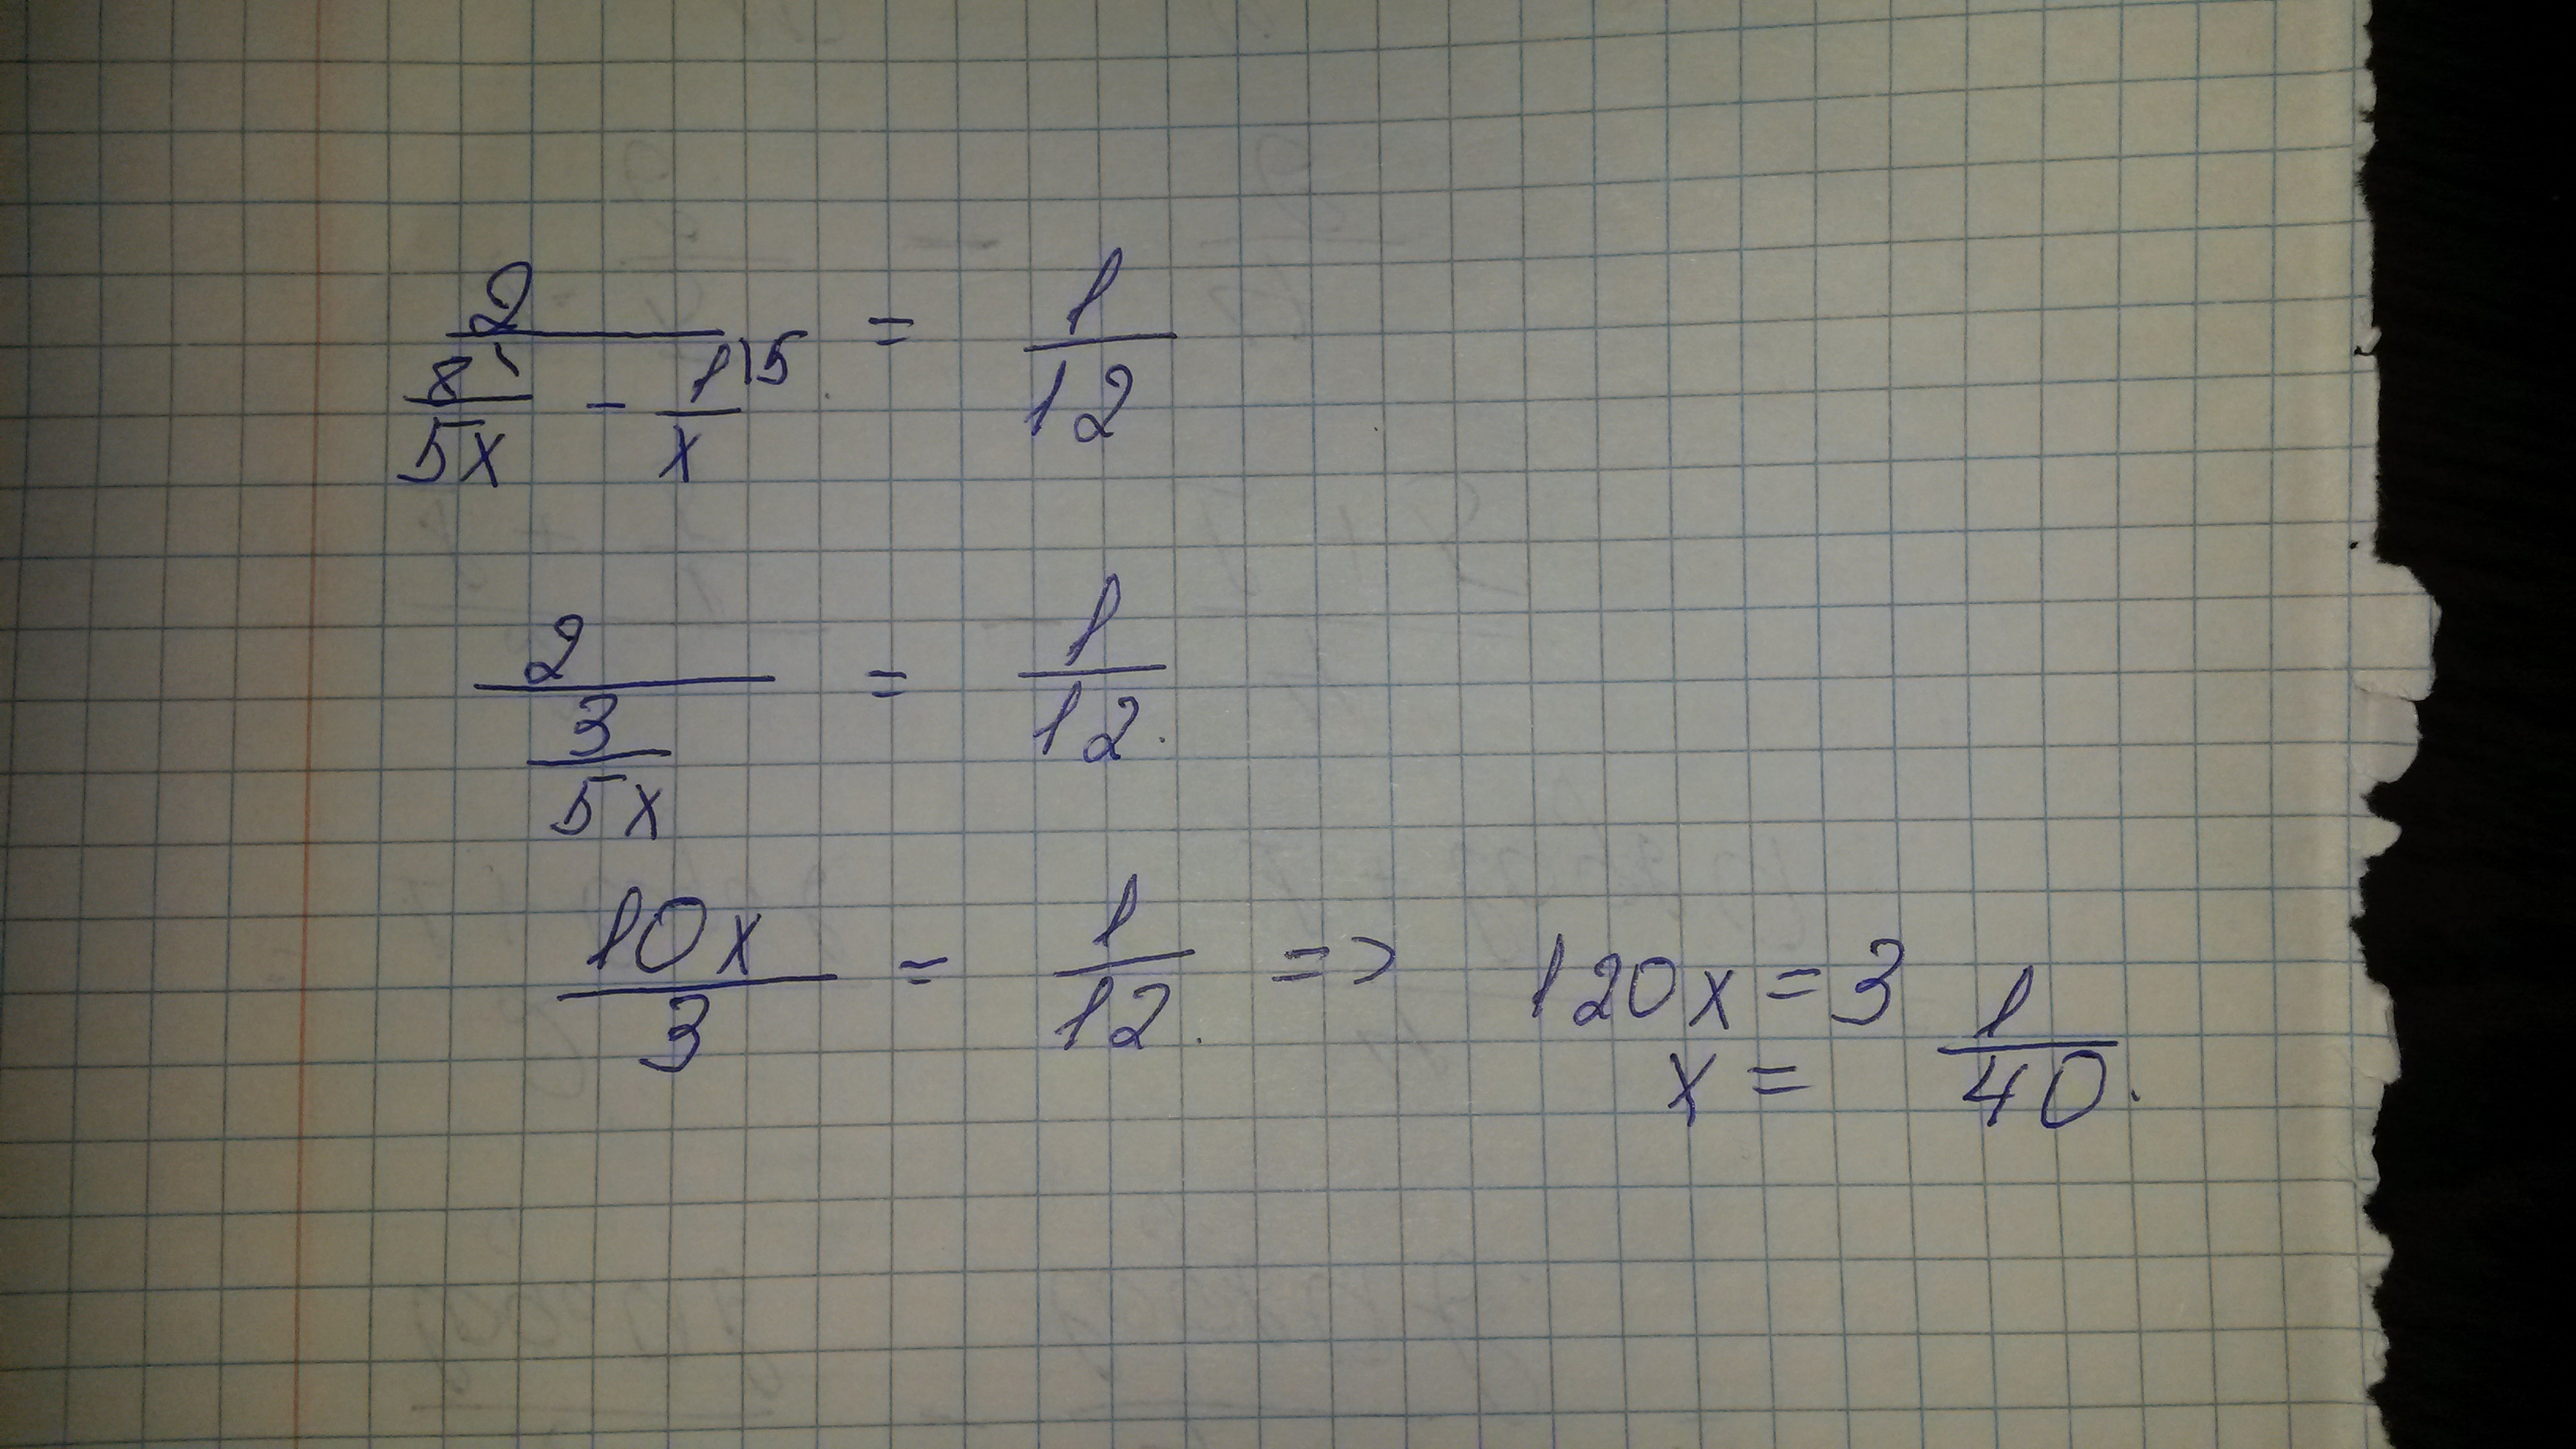 2 / (8 / 5x - 1\5 / x) = 1 / 12
2 / (3 / 5x) = 1 / 12.
10x / 3 = 1 / 12. => 120x = 3
x = 1 / 40.